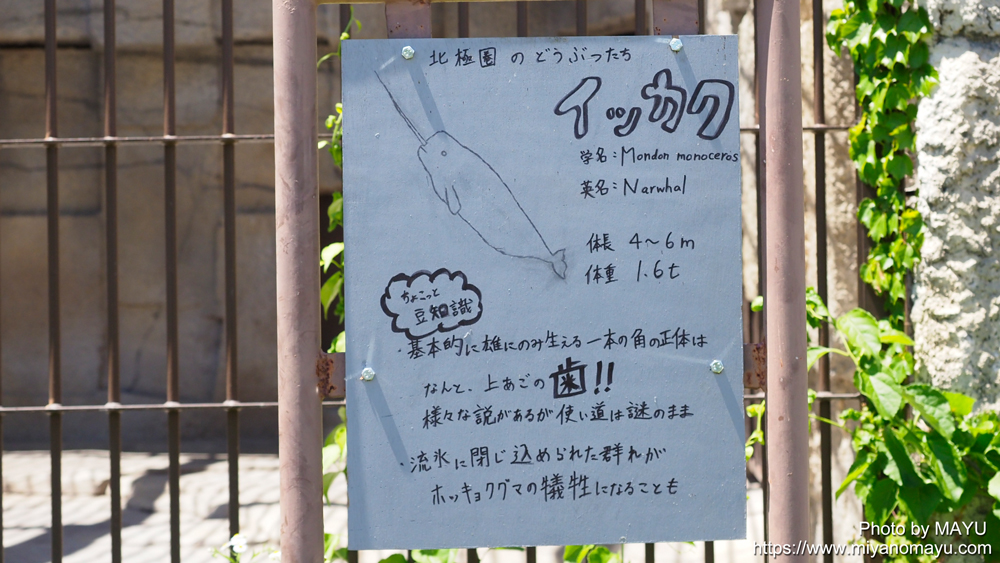 北極圏のどうぶつたち
イッカク
学名:Mondon monoceros
英名:Narwhal
体長 4〜6m
体重 1.6t
ちょこっと
豆知識
・基本的に雄にのみ生える一本の角の正体は
なんと、上あごの歯!!
様々な説があるが使い道は謎のまま
・流氷に閉じ込められた群れが
ホッキョクグマの犠牲になることも
Photo by MAYU
https://www.miyanomayu.com